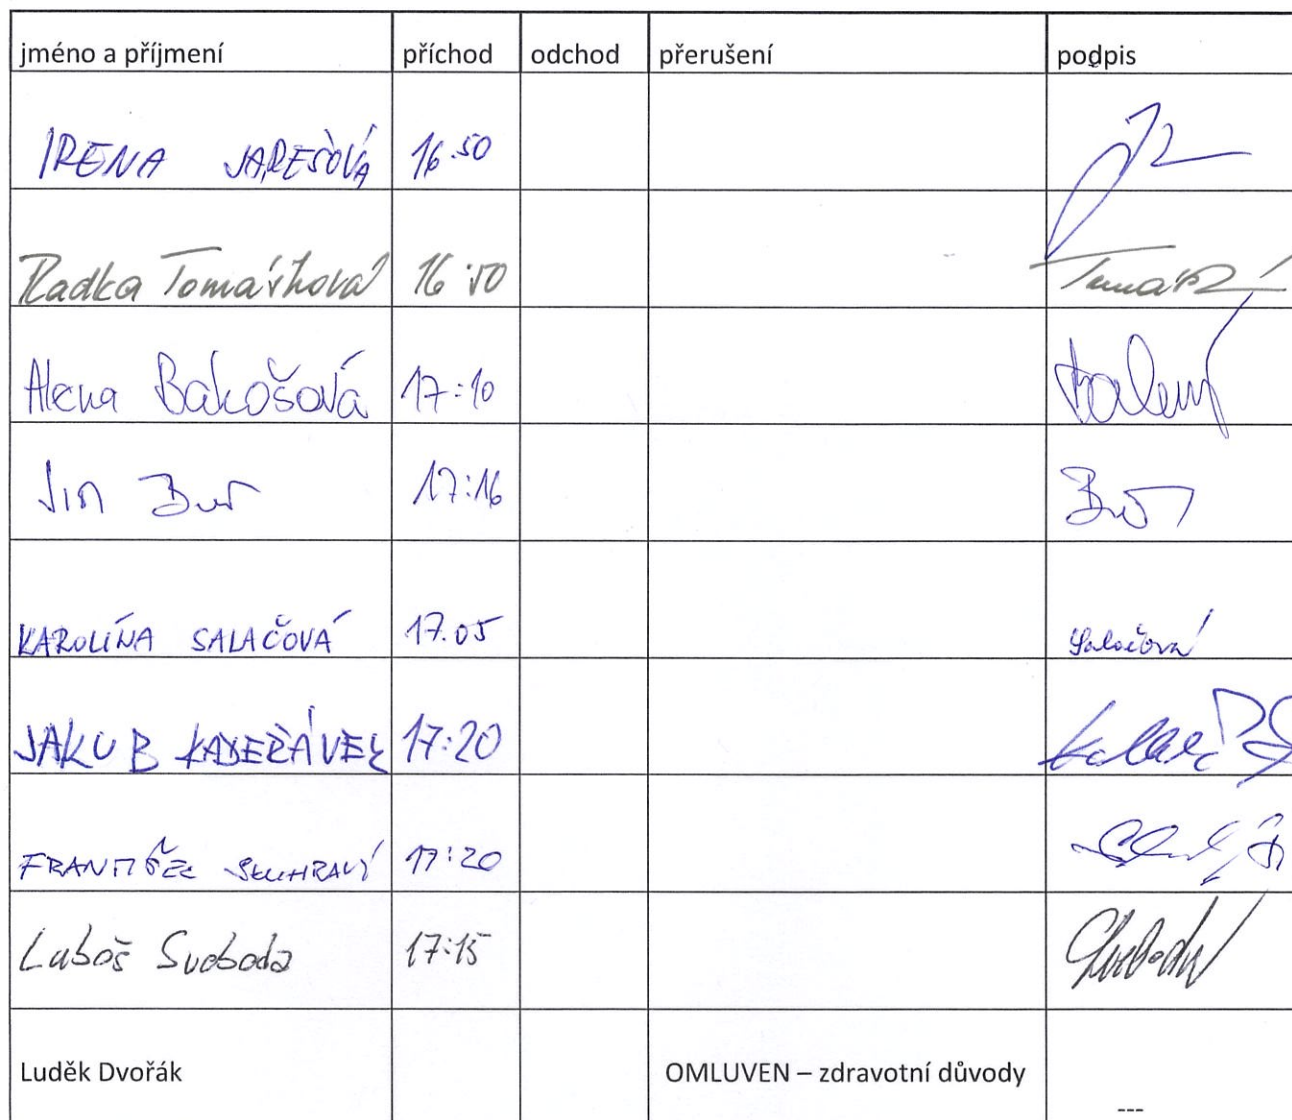 jméno a příjmení příchod odchod přerušení podpis
IRENA JAREŠOVÁ 16.50
Radka Tomášková 16:50
Alena Bakošová 17:10
17:16
KAROLÍNA SALAČOVÁ 17.05 Salačová
JAKUB KADEŘÁVEK 17:20
FRANTIŠEK 17:20
Luboš Svoboda 17:15 Svoboda
Luděk Dvořák OMLUVEN – zdravotní důvody ---